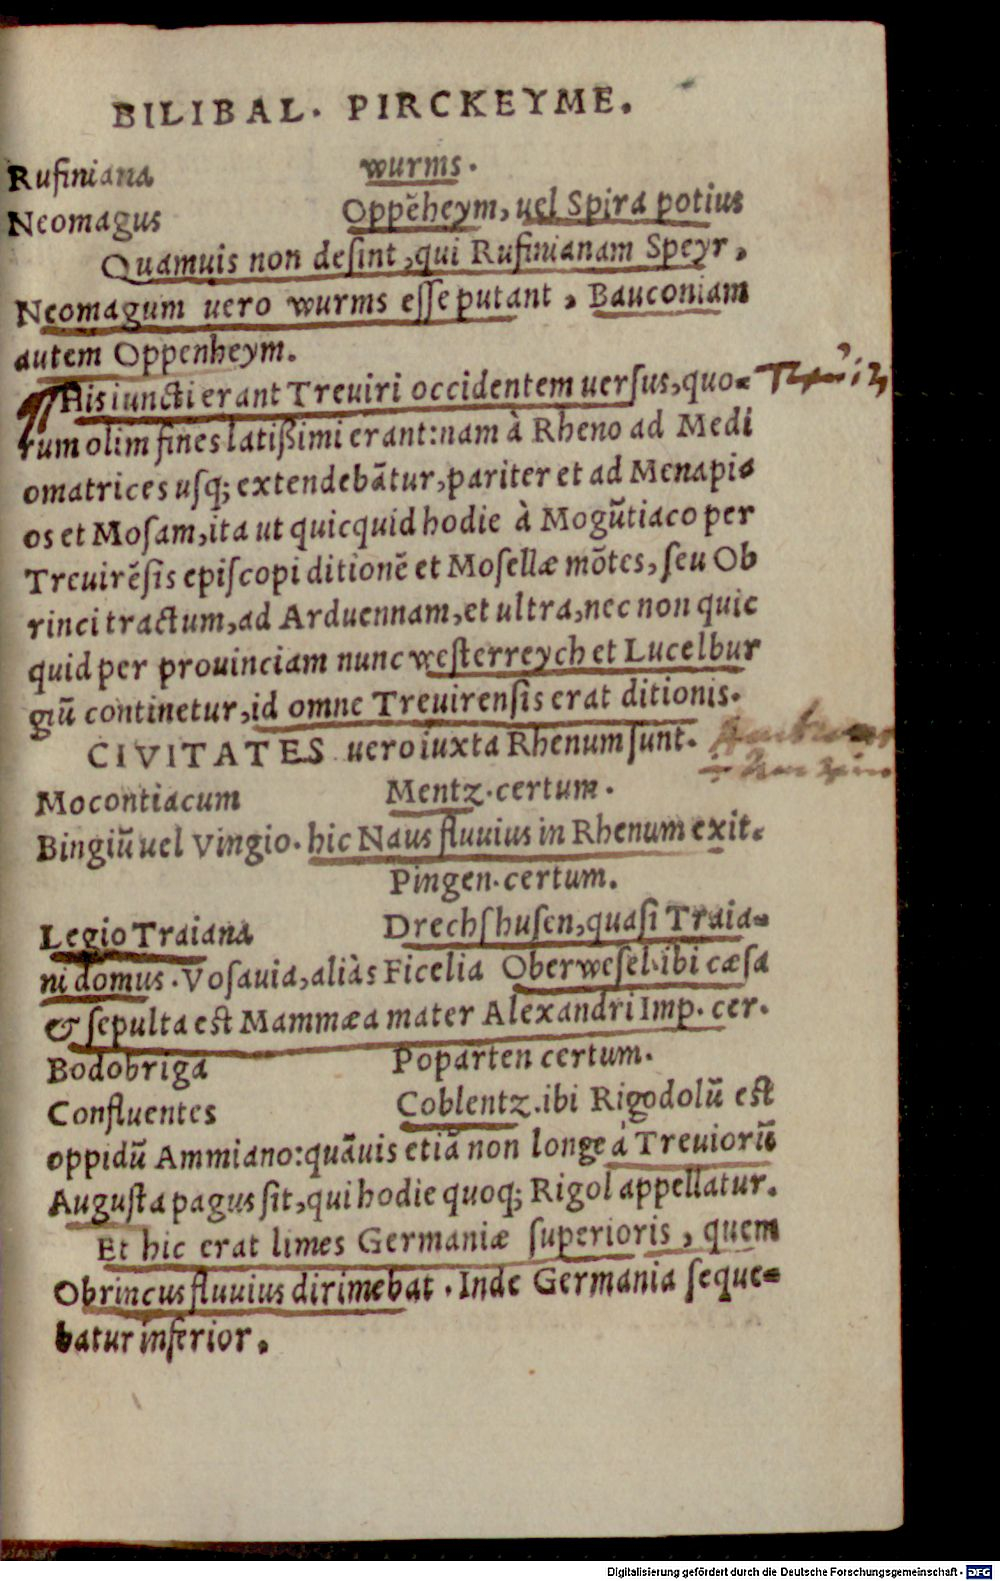 BILIBAL. PIRCKEYME.
Rufiniana wurms.
Neomagus Oppēheym, uel Spira potius
Quamuis non desint, qui Rufinianam Speyr,
Neomagum uero wurms esse putant, Bauconiam
autem Oppenheym.
His iuncti erant Treuiri occidentem uersus, quo-
rum olim fines latißimi erant: nam à Rheno ad Medi
omatrices usq; extendebātur, pariter et ad Menapi-
os et Mosam, ita ut quicquid hodie à Mogūtiaco per
Treuirēsis episcopi ditionē et Mosellæ mōtes, seu Ob
rinci tractum, ad Arduennam, et ultra, nec non quic
quid per prouinciam nunc westerreych et Lucelbur
giū continetur, id omne Treuirensis erat ditionis.
CIVITATES uero iuxta Rhenum sunt.
Mocontiacum Mentz. certum.
Bingiū uel Vingio. hic Naus fluuius in Rhenum exit.
Pingen. certum.
Legio Traiana Drechshusen, quasi Traia-
ni domus. Vosauia, aliàs Ficelia Oberwesel. ibi cæsa
& sepulta est Mammæa mater Alexandri Imp. cer.
Bodobriga Poparten certum.
Confluentes Coblentz. ibi Rigodolū est
oppidū Ammiano: quāuis etiā non longe à Treuiorū
Augusta pagus sit, qui hodie quoq; Rigol appellatur.
Et hic erat limes Germaniæ superioris, quem
Obrincus fluuius dirimebat. Inde Germania seque-
batur inferior.
Digitalisierung gefördert durch die Deutsche Forschungsgemeinschaft - DFG